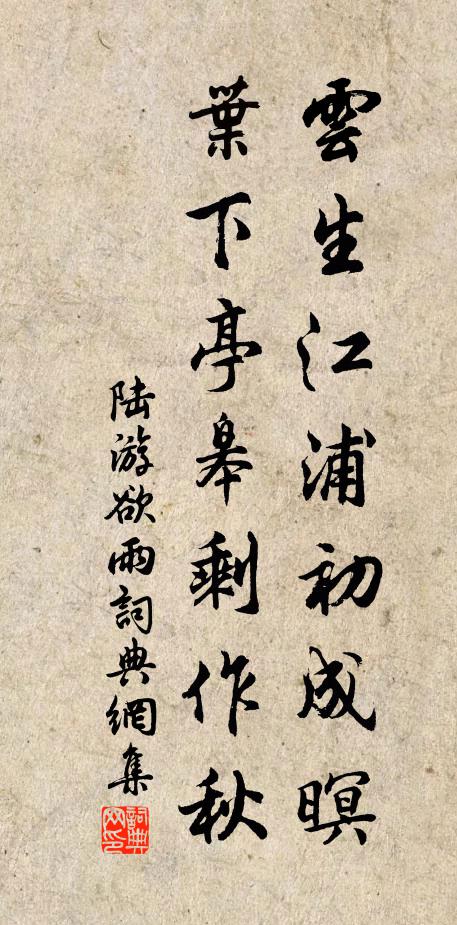 雲生江浦初成暝
葉下亭皋剩作秋
陸游欲雨詞典網集
詞典網印